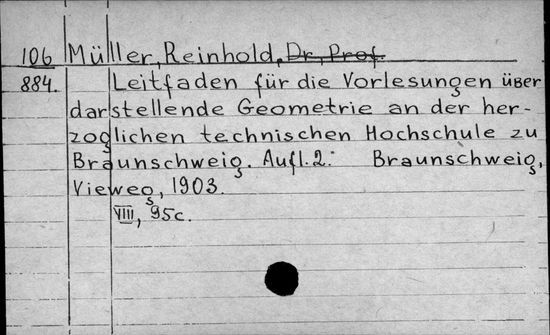 106 Müller, Reinhold, Dr., Prof.
884. Leitfaden für die Vorlesungen über
darstellende Geometrie an der her-
zoglichen technischen Hochschule zu
Braunschweig. Aufl. 2. Braunschweig,
Vieweg, 1903.
VIII, 95c.